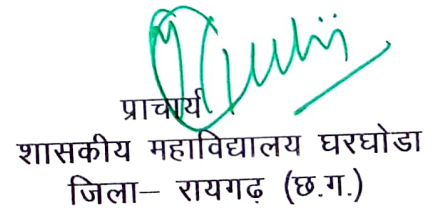 प्राचार्य
शासकीय महाविद्यालय घरघोडा
जिला– रायगढ़ (छ.ग.)